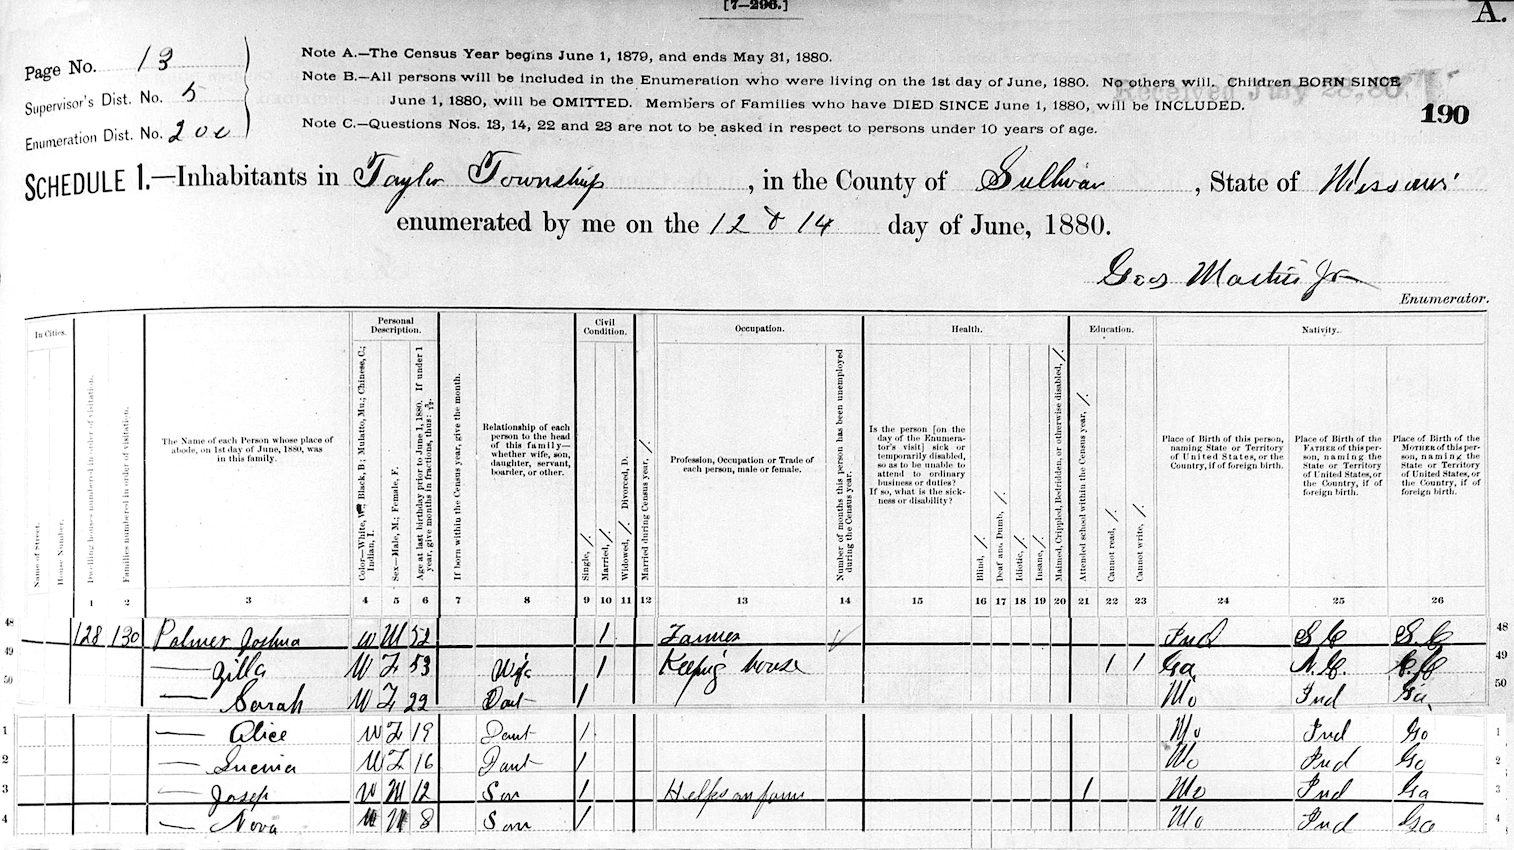 [7—296.]
A.
Page No. 13
Supervisor's Dist. No. 5
Enumeration Dist. No. 200
Note A.—The Census Year begins June 1, 1879, and ends May 31, 1880.
Note B.—All persons will be included in the Enumeration who were living on the 1st day of June, 1880. No others will. Children BORN SINCE
June 1, 1880, will be OMITTED. Members of Families who have DIED SINCE June 1, 1880, will be INCLUDED.
Note C.—Questions Nos. 13, 14, 22 and 23 are not to be asked in respect to persons under 10 years of age.
Received
190
SCHEDULE 1.—Inhabitants in Taylor Township, in the County of Sullivan, State of Missouri
enumerated by me on the 12 & 14 day of June, 1880.
Geo Martin Jr
Enumerator.
In Cities.
Name of Street.
House Number.
Dwelling houses numbered in order of visitation.
Families numbered in order of visitation.
The Name of each Person whose place of
abode, on 1st day of June, 1880, was
in this family.
Personal
Description.
Color—White, W.; Black, B.; Mulatto, Mu.; Chinese, C.;
Indian, I.
Sex—Male, M.; Female, F.
Age at last birthday prior to June 1, 1880. If under 1
year, give months in fractions, thus: 3/12.
If born within the Census year, give the month.
Relationship of each
person to the head
of this family—
whether wife, son,
daughter, servant,
boarder, or other.
Civil
Condition.
Single, /.
Married, /.
Widowed, /. Divorced, D.
Married during Census year, /.
Occupation.
Profession, Occupation or Trade of
each person, male or female.
Number of months this person has been unemployed
during the Census year.
Health.
Is the person [on the
day of the Enumera-
tor's visit] sick or
temporarily disabled,
so as to be unable to
attend to ordinary
business or duties?
If so, what is the sick-
ness or disability?
Blind, /.
Deaf and Dumb, /.
Idiotic, /.
Insane, /.
Maimed, Crippled, Bedridden, or otherwise disabled, /.
Education.
Attended school within the Census year, /.
Cannot read, /.
Cannot write, /.
Nativity.
Place of Birth of this person,
naming State or Territory
of United States, or the
Country, if of foreign birth.
Place of Birth of the
FATHER of this per-
son, naming the
State or Territory
of United States, or
the Country, if of
foreign birth.
Place of Birth of the
MOTHER of this per-
son, naming the
State or Territory
of United States, or
the Country, if of
foreign birth.
1 2 3 4 5 6 7 8 9 10 11 12 13 14 15 16 17 18 19 20 21 22 23 24 25 26
48 128 130 Palmer Joshua W M 52 1 Farmer Ind S.C S.C 48
49 — Zilla W F 53 Wife 1 Keeping house 1 1 Ga N.C. 49
50 — Sarah W F 22 Daut 1 Mo Ind Ga 50
1 — Alice W F 19 Daut 1 Mo Ind Ga 1
2 — W F 16 Daut 1 Mo Ind Ga 2
3 — Josep W M 12 Son 1 Helps on farm 1 Mo Ind Ga 3
4 — Nova W M 8 Son 1 Mo Ind Ga 4